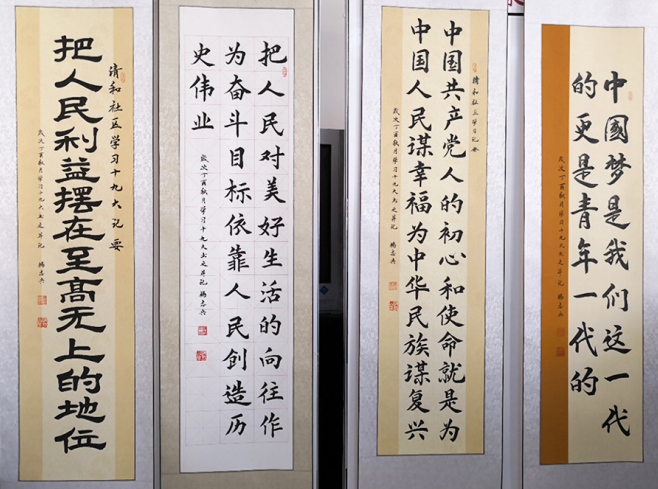 清和社区学习十九大记要
把人民利益摆在至高无上的地位
岁次丁酉秋月学习十九大之笔记 杨志兵
把人民对美好生活的向往作
为奋斗目标依靠人民创造历
史伟业
岁次丁酉秋月学习十九大之笔记 杨志兵
清和社区学习记要
中国共产党人的初心和使命就是为
中国人民谋幸福为中华民族谋复兴
岁次丁酉秋月学习十九大之笔记 杨志兵
中國梦是我们这一代
的更是青年一代的
岁次丁酉秋月学习十九大之笔记 杨志兵